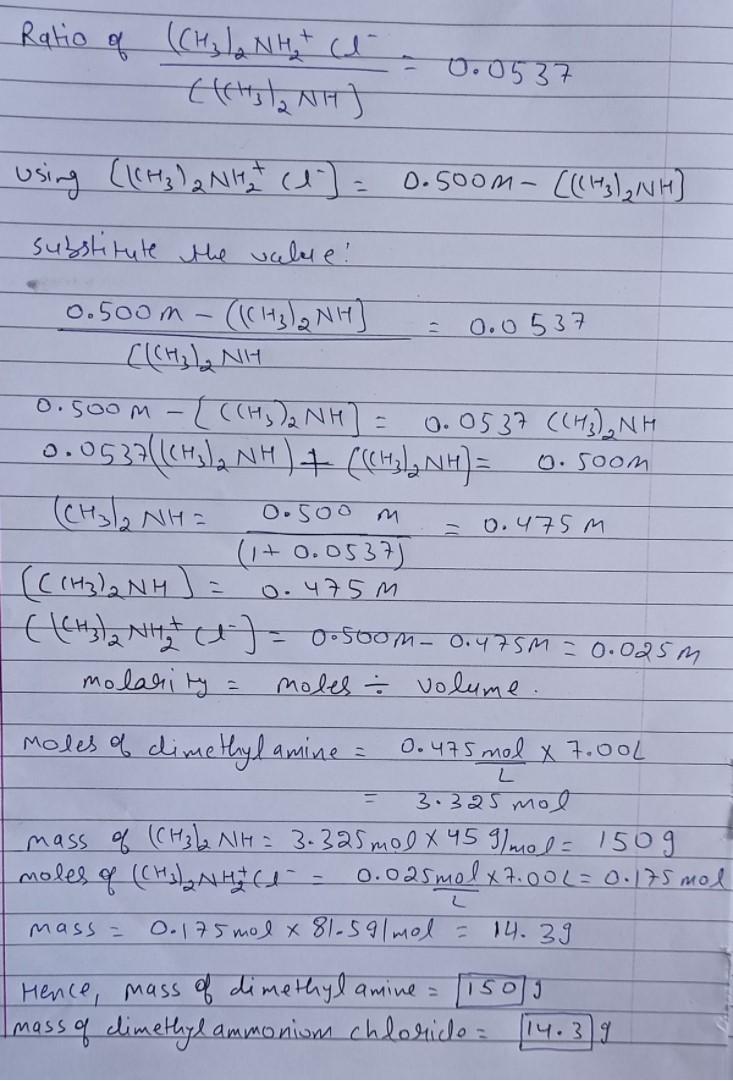 Ratio of (CH3)2 NH2+ Cl- = 0.0537
((CH3)2 NH]
Using [(CH3)2NH2+ Cl-] = 0.500M - [(CH3)2NH]
substitute the value:
0.500 M - ((CH3)2NH] = 0.0537
[(CH3)2 NH
0.500 M - [(CH3)2 NH] = 0.0537 (CH3)2NH
0.0537((CH3)2 NH) + [(CH3)2NH] = 0.500M
(CH3)2 NH = 0.500 M = 0.475 M
(1 + 0.0537)
[(CH3)2NH] = 0.475 M
((CH3)2 NH2+ Cl-] = 0.500M - 0.475M = 0.025 M
molarity = moles ÷ volume.
Moles of dimethylamine = 0.475 mol x 7.00L
L
= 3.325 mol
mass of (CH3)2 NH = 3.325mol x 45 g/mol = 150 g
moles of (CH3)2NH2+Cl- = 0.025mol x 7.00L = 0.175 mol
L
mass = 0.175 mol x 81.5g/mol = 14.3g
Hence, mass of dimethylamine = 150 g
mass of dimethylammonium chloride = 14.3 g